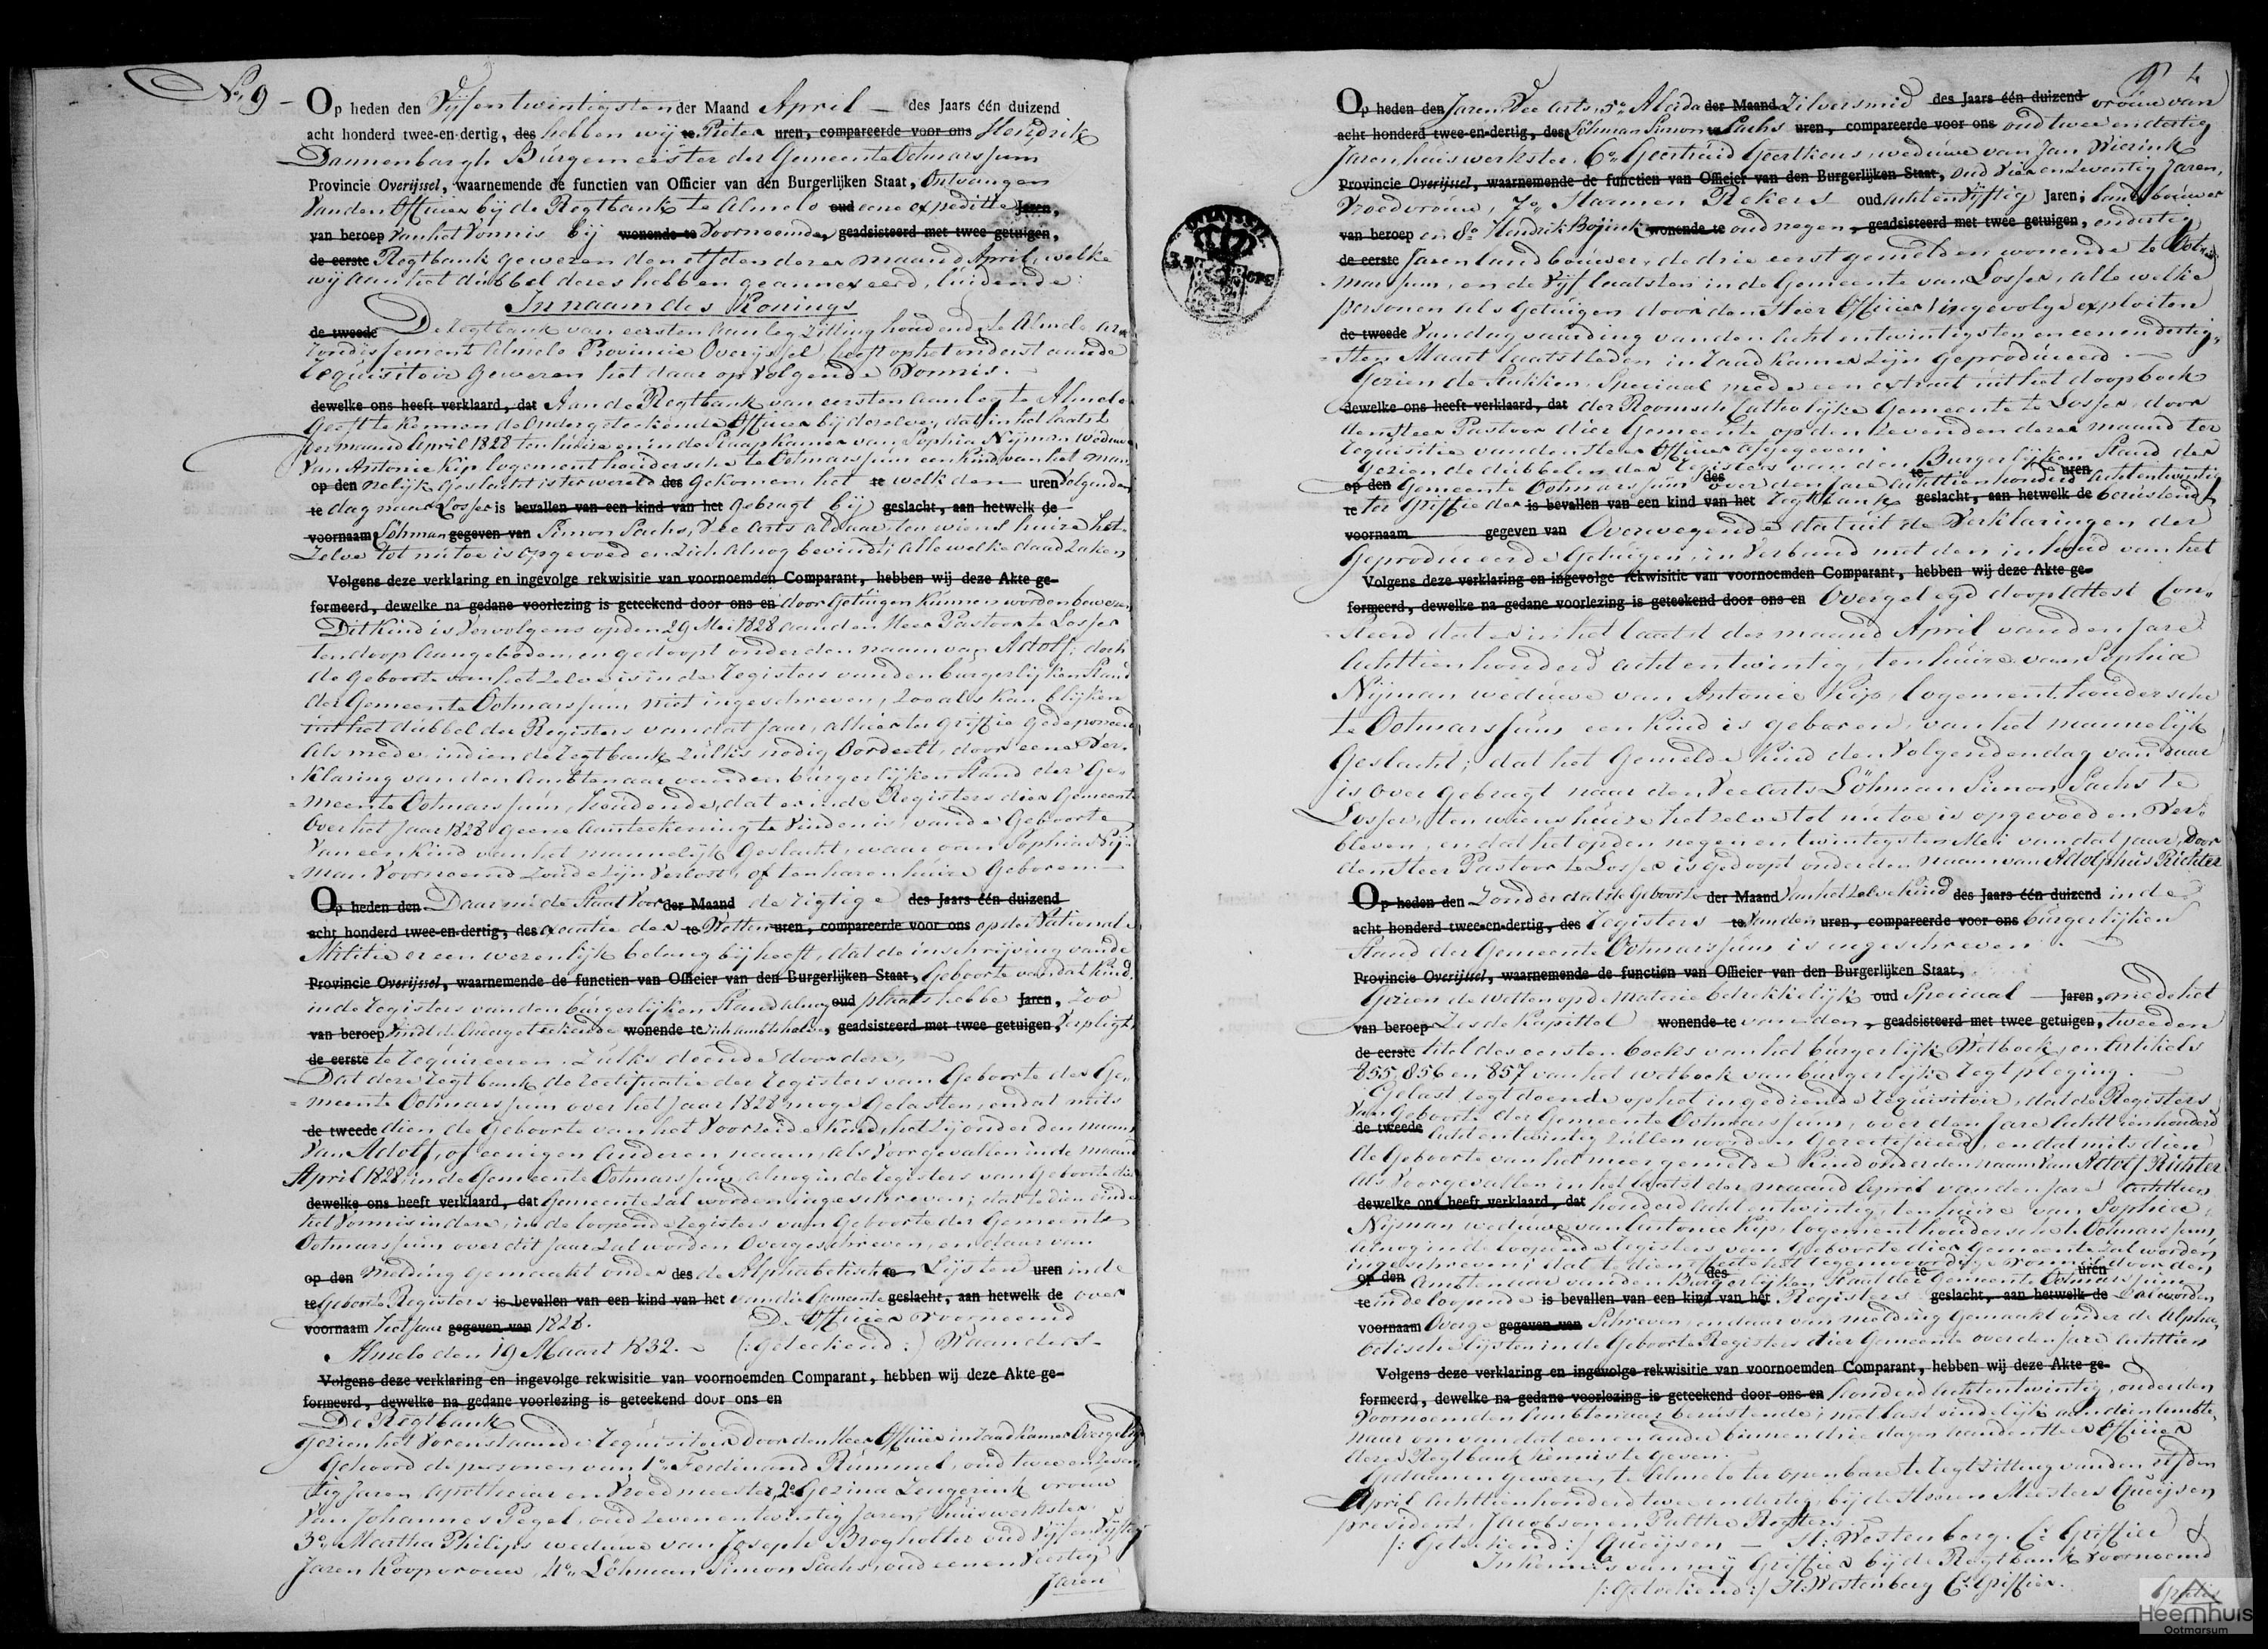 No. 9 - Op heden den Vijfentwintigsten der Maand April - des Jaars één duizend
acht honderd twee-en-dertig, des hebben wij te Pieter uren, compareerde voor ons Hendrik
Dannenbargh Burgemeester der Gemeente Ootmarssum
Provincie Overijssel, waarnemende de functien van Officier van den Burgerlijken Staat, Ontvangen
van den Officier bij de Regtbank te Almelo oud eene expeditie Jaren,
van beroep van het Vonnis bij wonende te voornoemde, geadsisteerd met twee getuigen,
de eerste Regtbank gewezen den elfden dezer maand April, welke
wij aan het dubbel dezes hebben geannexeerd, luidende:
In naam des Konings
de tweede De Regtbank van eersten aanleg zitting houdende te Almelo Ar-
rondissement Almelo Provincie Overijssel heeft op het onderstaande
requisitoir gewezen het daar op volgende Vonnis.
dewelke ons heeft verklaard, dat Aan de Regtbank van eersten aanleg te Almelo
Geeft te kennen de ondergeteekende Officier bij dezelve, dat in het laatst
der maand April 1828 ten huize en in de Slaapkamer van Sophia Nijman weduwe
van Antonie Kip logementhoudersche te Ootmarssum een kind van het man-
op den nelijk geslacht is ter wereld des gekomen, het te welk den uren volgenden
te dag naar Losser is bevallen van een kind van het gebragt bij geslacht, aan hetwelk de
voornaam Löhman gegeven van Simon Sachs, Vee arts aldaar, ten wiens huize het-
zelve tot nu toe is opgevoed en zich alnog bevindt; alle welke daadzaken
Volgens deze verklaring en ingevolge rekwisitie van voornoemden Comparant, hebben wij deze Akte ge-
formeerd, dewelke na gedane voorlezing is geteekend door ons en door Getuigen kunnen worden bewezen
Dit kind is vervolgens op den 29 Mei 1828 aan den Heer Pastoor te Losser
ten doop aangeboden, en gedoopt onder den naam van Adolf; doch
de geboorte van hetzelve is in de registers van den burgerlijken Stand
der Gemeente Ootmarssum niet ingeschreven, zoo als kan blijken
uit het dubbel der Registers van dat jaar, alhier ter Griffie gedeponeerd
als mede indien de regtbank zulks nodig oordeelt, door eene Ver-
klaring van den Ambtenaar van den burgerlijken Stand der Ge-
meente Ootmarssum, houdende, dat er in de Registers dier Gemeente
over het Jaar 1828 geene aanteekening te vinden is van de Geboorte
van een kind van het mannelijk Geslacht, waar van Sophia Nij-
man voornoemd zoude zijn verlost, of ten haren huize Geboren.
Op heden den Daar nu de Staat voor der Maand de rigtige des Jaars één duizend
acht honderd twee-en-dertig, des executie der te Wetten uren, compareerde voor ons op de Nationale
Militie er een wezenlijk belang bij heeft, dat de inschrijving van de
Provincie Overijssel, waarnemende de functien van Officier van den Burgerlijken Staat, Geboorte van dat kind
in de registers van den burgerlijken Stand alnog oud plaats hebbe Jaren, zoo
van beroep vindt de Ondergeteekende wonende te zich ambtshalve, geadsisteerd met twee getuigen, verpligt
de eerste te requireeren, zulks doende door deze,
Dat deze regtbank de rectificatie der registers van Geboorte der Ge-
meente Ootmarssum over het Jaar 1828 moge Gelasten, en dat mits
de tweede dien de Geboorte van het voorzeide kind, het zij onder den naam
van Adolf, of eenigen anderen naam, als voorgevallen in de maand
April 1828, in de Gemeente Ootmarssum, alnog in de registers van Geboorte dier
dewelke ons heeft verklaard, dat Gemeente zal worden ingeschreven; dat te dien einde
het Vonnis in deze, in de loopende registers van Geboorte der Gemeente
Ootmarssum over dit jaar zal worden overgeschreven, en daar van
op den melding gemaakt onder des de Alphabetische te Lijsten uren in de
te Geboorte Registers is bevallen van een kind van het van die Gemeente geslacht, aan hetwelk de over
voornaam het jaar gegeven van 1828. De Officier voornoemd
Almelo den 19 Maart 1832. (:Geteekend:) Waanders
Volgens deze verklaring en ingevolge rekwisitie van voornoemden Comparant, hebben wij deze Akte ge-
formeerd, dewelke na gedane voorlezing is geteekend door ons en
De Regtbank
Gezien het vorenstaande requisitoir door den Heer Officier in raadkamer overgelegd
Gehoord de personen van 1o. Ferdinand Rummel, oud twee en zeven-
tig jaren, Apothecar en Vroedmeester, 2o Gezina Zeugerink vrouw
van Johannes Pegel, oud zeven en twintig jaren, huiswerkster,
3o. Martha Philips weduwe van Joseph Brogholter oud vijf en vijftig
Jaren koopvrouw, 4o. Löhman Simon Sachs, oud eenenveertig
Jaren
9 4
Op heden den Jaren Vee Arts, 5o. Alerda der Maand Zilversmid des Jaars één duizend vrouw van
acht honderd twee-en-dertig, des Löhman Simon te Sachs uren, compareerde voor ons oud twee en dertig
Jaren huiswerkster, 6o. Geertruid Geertkens, weduwe van Jan Wierink
Provincie Overijssel, waarnemende de functien van Officier van den Burgerlijken Staat, oud vier en zeventig Jaren,
Vroedvrouw, 7o. Harmen Rekers oud acht en vijftig Jaren; landbouwer
van beroep en 8o Hendrik Boijink wonende te oud negen, geadsisteerd met twee getuigen, en dertig
de eerste Jaren landbouwer, de drie eerst gemelden wonende te Oot-
marssum, en de vijf laatsten in de Gemeente van Losser, alle welke
personen als getuigen door den Heer Officier ingevolge exploiten
de tweede van dagvaarding van den acht en twintigsten en een en dertig-
sten Maart laatstleden in raadkamer zijn geproduceerd.
Gezien de Stukken, Speciaal mede een extract uit het doopboek
dewelke ons heeft verklaard, dat der Roomsch Catholijke Gemeente te Losser, door
den Heer Pastoor dier Gemeente op den zevenden dezer maand ter
requisitie van den Heer Officier afgegeven.
Gezien de dubbelen der registers van den Burgerlijken Stand der
op den Gemeente Ootmarssum des over den jare te achttienhonderd uren achtentwintig
te ter Griffie der is bevallen van een kind van het regtbank geslacht, aan hetwelk de berustende
voornaam gegeven van Overwegende dat uit de verklaringen der
geproduceerde Getuigen, in verband met den inhoud van het
Volgens deze verklaring en ingevolge rekwisitie van voornoemden Comparant, hebben wij deze Akte ge-
formeerd, dewelke na gedane voorlezing is geteekend door ons en Overgelegd doopattest Con-
steerd dat er in het laatst der maand April van den Jare
achttienhonderd achtentwintig, ten huize van Sophia
Nijman weduwe van Antonie Kip, logementhoudersche
te Ootmarssum een kind is geboren, van het mannelijk
Geslacht; dat het gemelde kind den volgenden dag van daar
is over gebragt naar den Vee Arts Löhman Simon Sachs te
Losser, ten wiens huize hetzelve tot nu toe is opgevoed en ver-
bleven, en dat het op den negen en twintigsten Mei van dat jaar, door
den Heer Pastoor te Losser is gedoopt onder den naam van Adolphus Richter
Op heden den Zonder dat de Geboorte der Maand van hetzelve kind des Jaars één duizend in de
acht honderd twee-en-dertig, des registers te van den uren, compareerde voor ons burgerlijken
Stand der Gemeente Ootmarssum is ingeschreven.
Provincie Overijssel, waarnemende de functien van Officier van den Burgerlijken Staat,
Gezien de wetten op de materie betrekkelijk oud Speciaal Jaren, mede het
van beroep zesde Kapittel wonende te van den, geadsisteerd met twee getuigen, tweeden
de eerste titel des eersten boeks van het burgerlijk Wetboek, en Artikels
855, 856 en 857 van het wetboek van burgerlijke regtpleging.
Gelast, regt doende op het ingediende requisitoir, dat de Registers
van Geboorte der Gemeente Ootmarssum, over den jare achttienhonderd
de tweede achtentwintig zullen worden gerectificeerd, en dat mits dien
de Geboorte van het meergemelde kind onder den naam van Adolf Richter
als voorgevallen in het laatst der maand April van den jare achttien
dewelke ons heeft verklaard, dat honderd achtentwintig, ten huize van Sophia
Nijman weduwe van Antonie Kip, logementhoudersche te Ootmarssum,
alnog in de loopende registers van geboorte dier Gemeente zal worden
ingeschreven; dat te dien effecte het tegenwoordige vonnis door den
op den Ambtenaar van den des Burgerlijken Stand der te Gemeente Ootmarssum uren
te in de loopende is bevallen van een kind van het Registers geslacht, aan hetwelk de zal worden
voornaam Overge gegeven van Schreven, en daar van melding gemaakt onder de Alpha-
betische lijsten in de Geboorte Registers dier Gemeente over den jare achttien
Volgens deze verklaring en ingevolge rekwisitie van voornoemden Comparant, hebben wij deze Akte ge-
formeerd, dewelke na gedane voorlezing is geteekend door ons en honderd achtentwintig, onder den
voornoemden Ambtenaar berustende; met last eindelijk aan dien Ambte-
naar om van dat een en ander binnen drie dagen aan den Heer Officier
dezer Regtbank kennis te geven.
Gedaan en gewezen, te Almelo ter openbare teregtzitting van den elfden
April achttienhonderd twee en dertig, bij de Heeren Meesters Queijsen
president, Jacobson en Palthe Regters.
(:Geteekend:) Queijsen - H: Westenberg. C: Griffier
In kennis van mij Griffier bij de Regtbank voornoemd
(:Geteekend:) H: Westenberg C: Griffier.
Heemhuis
Ootmarsum